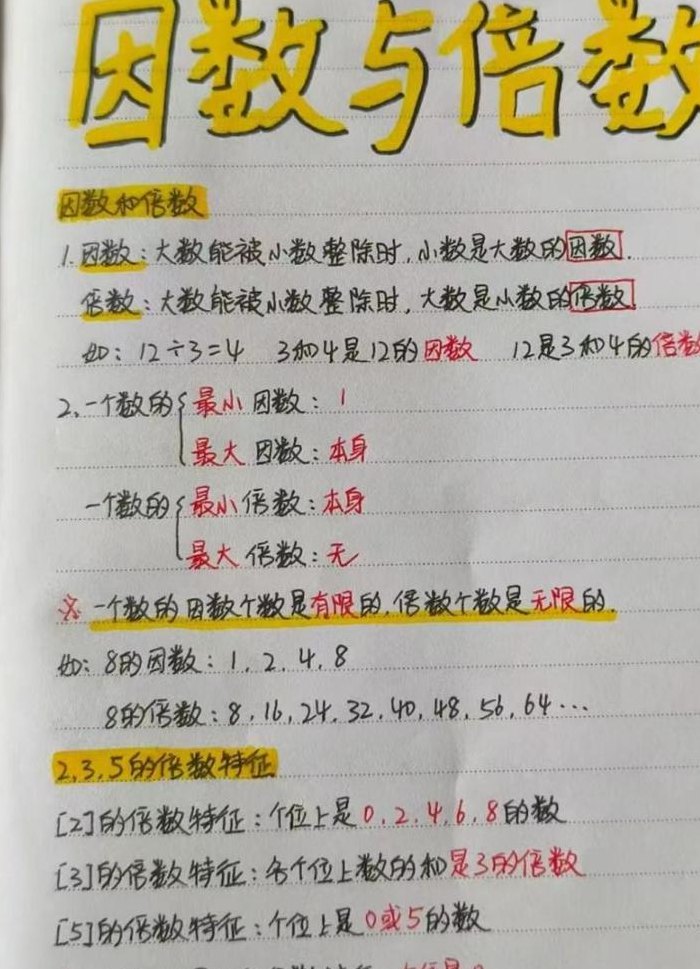 因数与倍数
因数和倍数
1.因数：大数能被小数整除时，小数是大数的因数.
倍数：大数能被小数整除时，大数是小数的倍数.
如：12÷3=4 3和4是12的因数 12是3和4的倍数
2.一个数的{最小因数：1
最大因数：本身
一个数的{最小倍数：本身
最大倍数：无
※一个数的因数个数是有限的，倍数个数是无限的.
如：8的因数：1，2，4，8
8的倍数：8，16，24，32，40，48，56，64…
2，3，5的倍数特征
[2]的倍数特征：个位上是0，2，4，6，8的数
[3]的倍数特征：各个位上数的和是3的倍数
[5]的倍数特征：个位上是0或5的数